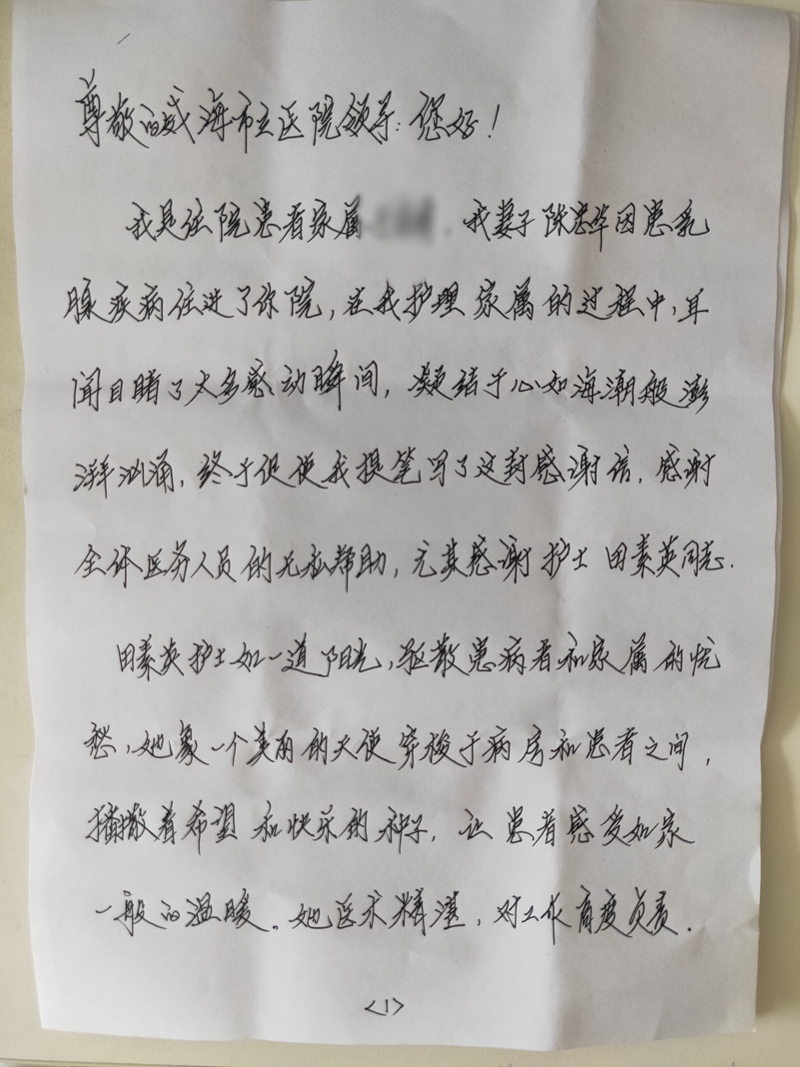 尊敬的威海市立医院领导：您好！
我是住院患者家属 . 我妻子陈忠华因患乳
腺疾病住进了你院，在我护理家属的过程中，耳
闻目睹了太多感动瞬间，凝结于心如海潮般澎
湃汹涌，终于促使我提笔写了这封感谢信，感谢
全体医务人员的无私帮助，尤其感谢护士田素英同志.
田素英护士如一道阳光，驱散患病者和家属的忧
愁，她象一个美丽的天使穿梭于病房和患者之间，
播撒着希望和快乐的种子，让患者感受如家
一般的温暖。她医术精湛，对工作高度负责.
<1>